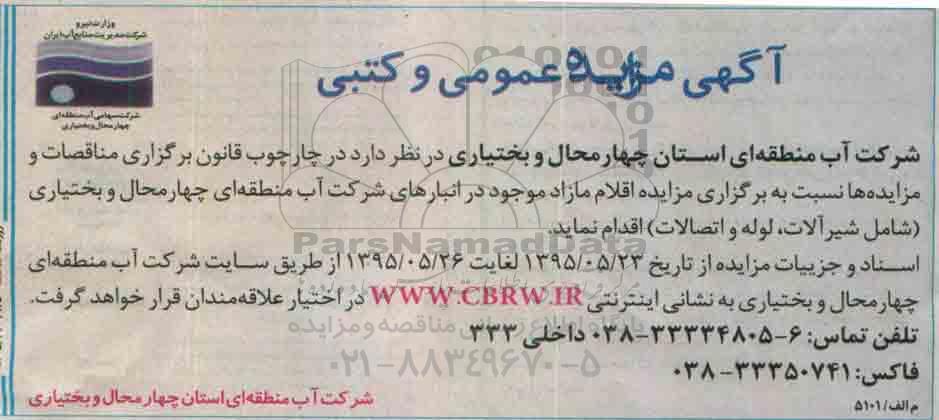 وزارت نیرو
شرکت مدیریت منابع آب ایران
شرکت سهامی آب منطقه‌ای
چهارمحال و بختیاری
آگهی مزایده عمومی و کتبی
شرکت آب منطقه‌ای استان چهارمحال و بختیاری در نظر دارد در چارچوب قانون برگزاری مناقصات و
مزایده‌ها نسبت به برگزاری مزایده اقلام مازاد موجود در انبارهای شرکت آب منطقه‌ای چهارمحال و بختیاری
(شامل شیرآلات، لوله و اتصالات) اقدام نماید.
ParsNamadData
اسناد و جزییات مزایده از تاریخ ۱۳۹۵/۰۵/۲۳ لغایت ۱۳۹۵/۰۵/۲۶ از طریق سایت شرکت آب منطقه‌ای
چهارمحال و بختیاری به نشانی اینترنتی WWW.CBRW.IR در اختیار علاقه‌مندان قرار خواهد گرفت.
پایگاه اطلاع رسانی مناقصه و مزایده
تلفن تماس: ۶-۳۳۳۳۴۸۰۵-۰۳۸ داخلی ۳۳۳
۰۲۱-۸۸۳۴۹۶۷۰-۵
فاکس: ۳۳۳۵۰۷۴۱-۰۳۸
شرکت آب منطقه‌ای استان چهارمحال و بختیاری
م الف/۵۱۰۱